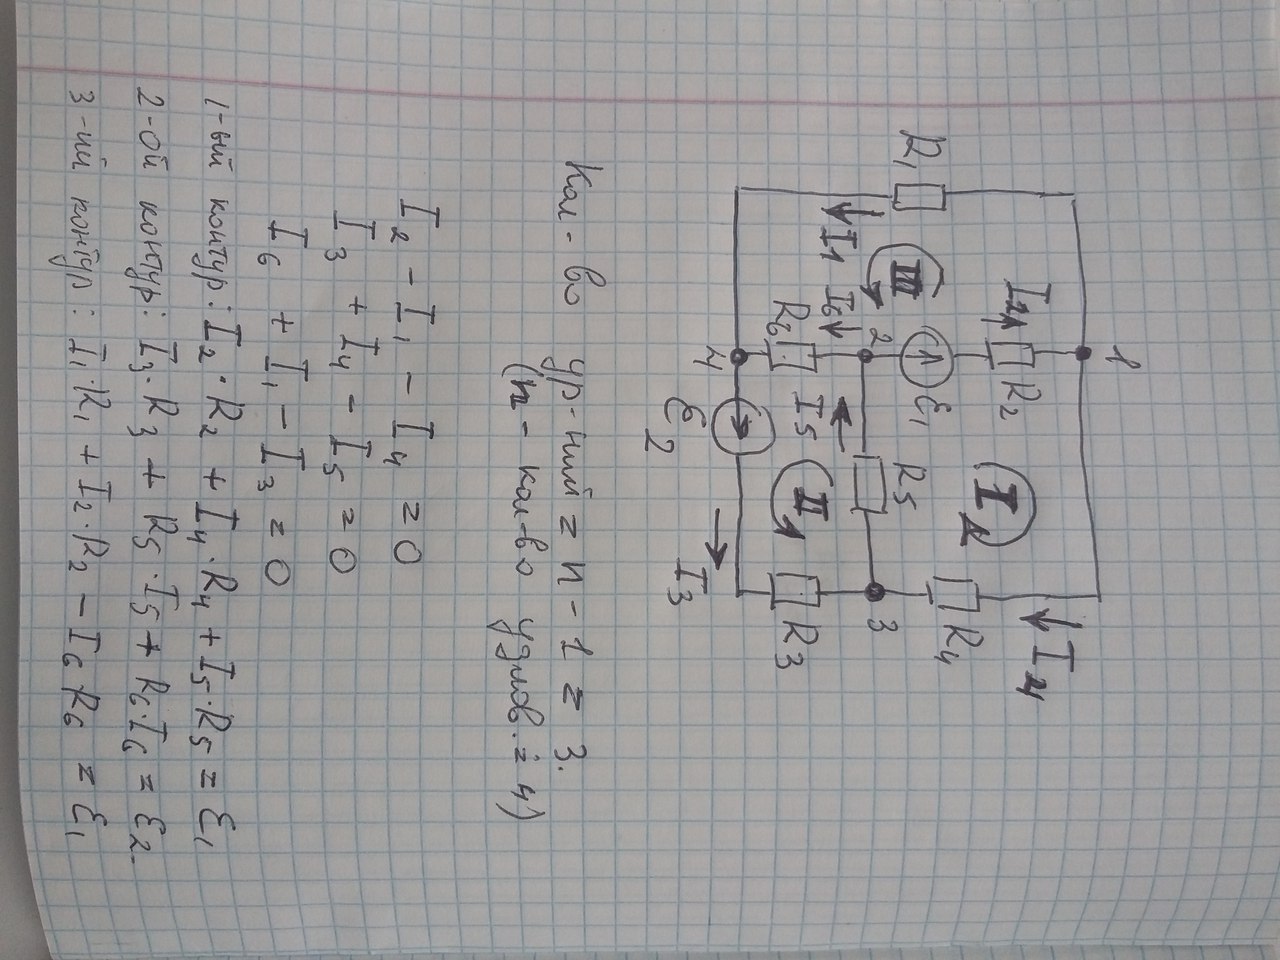 1
R1
I1
III
I2
R2
I
I4
R4
ε1
2
I6
R6
I5
R5
3
II
R3
4
ε2
I3
Кол-во ур-ний = n - 1 = 3.
(n - кол-во узлов. = 4)
I2 - I1 - I4 = 0
I3 + I4 - I5 = 0
I6 + I1 - I3 = 0
1-ый контур: I2·R2 + I4·R4 + I5·R5 = ε1
2-ой контур: I3·R3 + R5·I5 + R6·I6 = ε2
3-ий контур: I1·R1 + I2·R2 - I6R6 = ε1